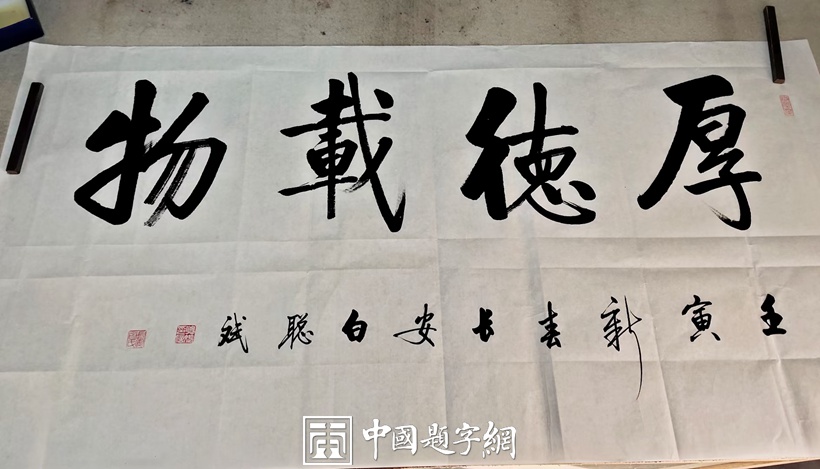 厚德載物
壬寅新春長安白聪斌
中國題字網